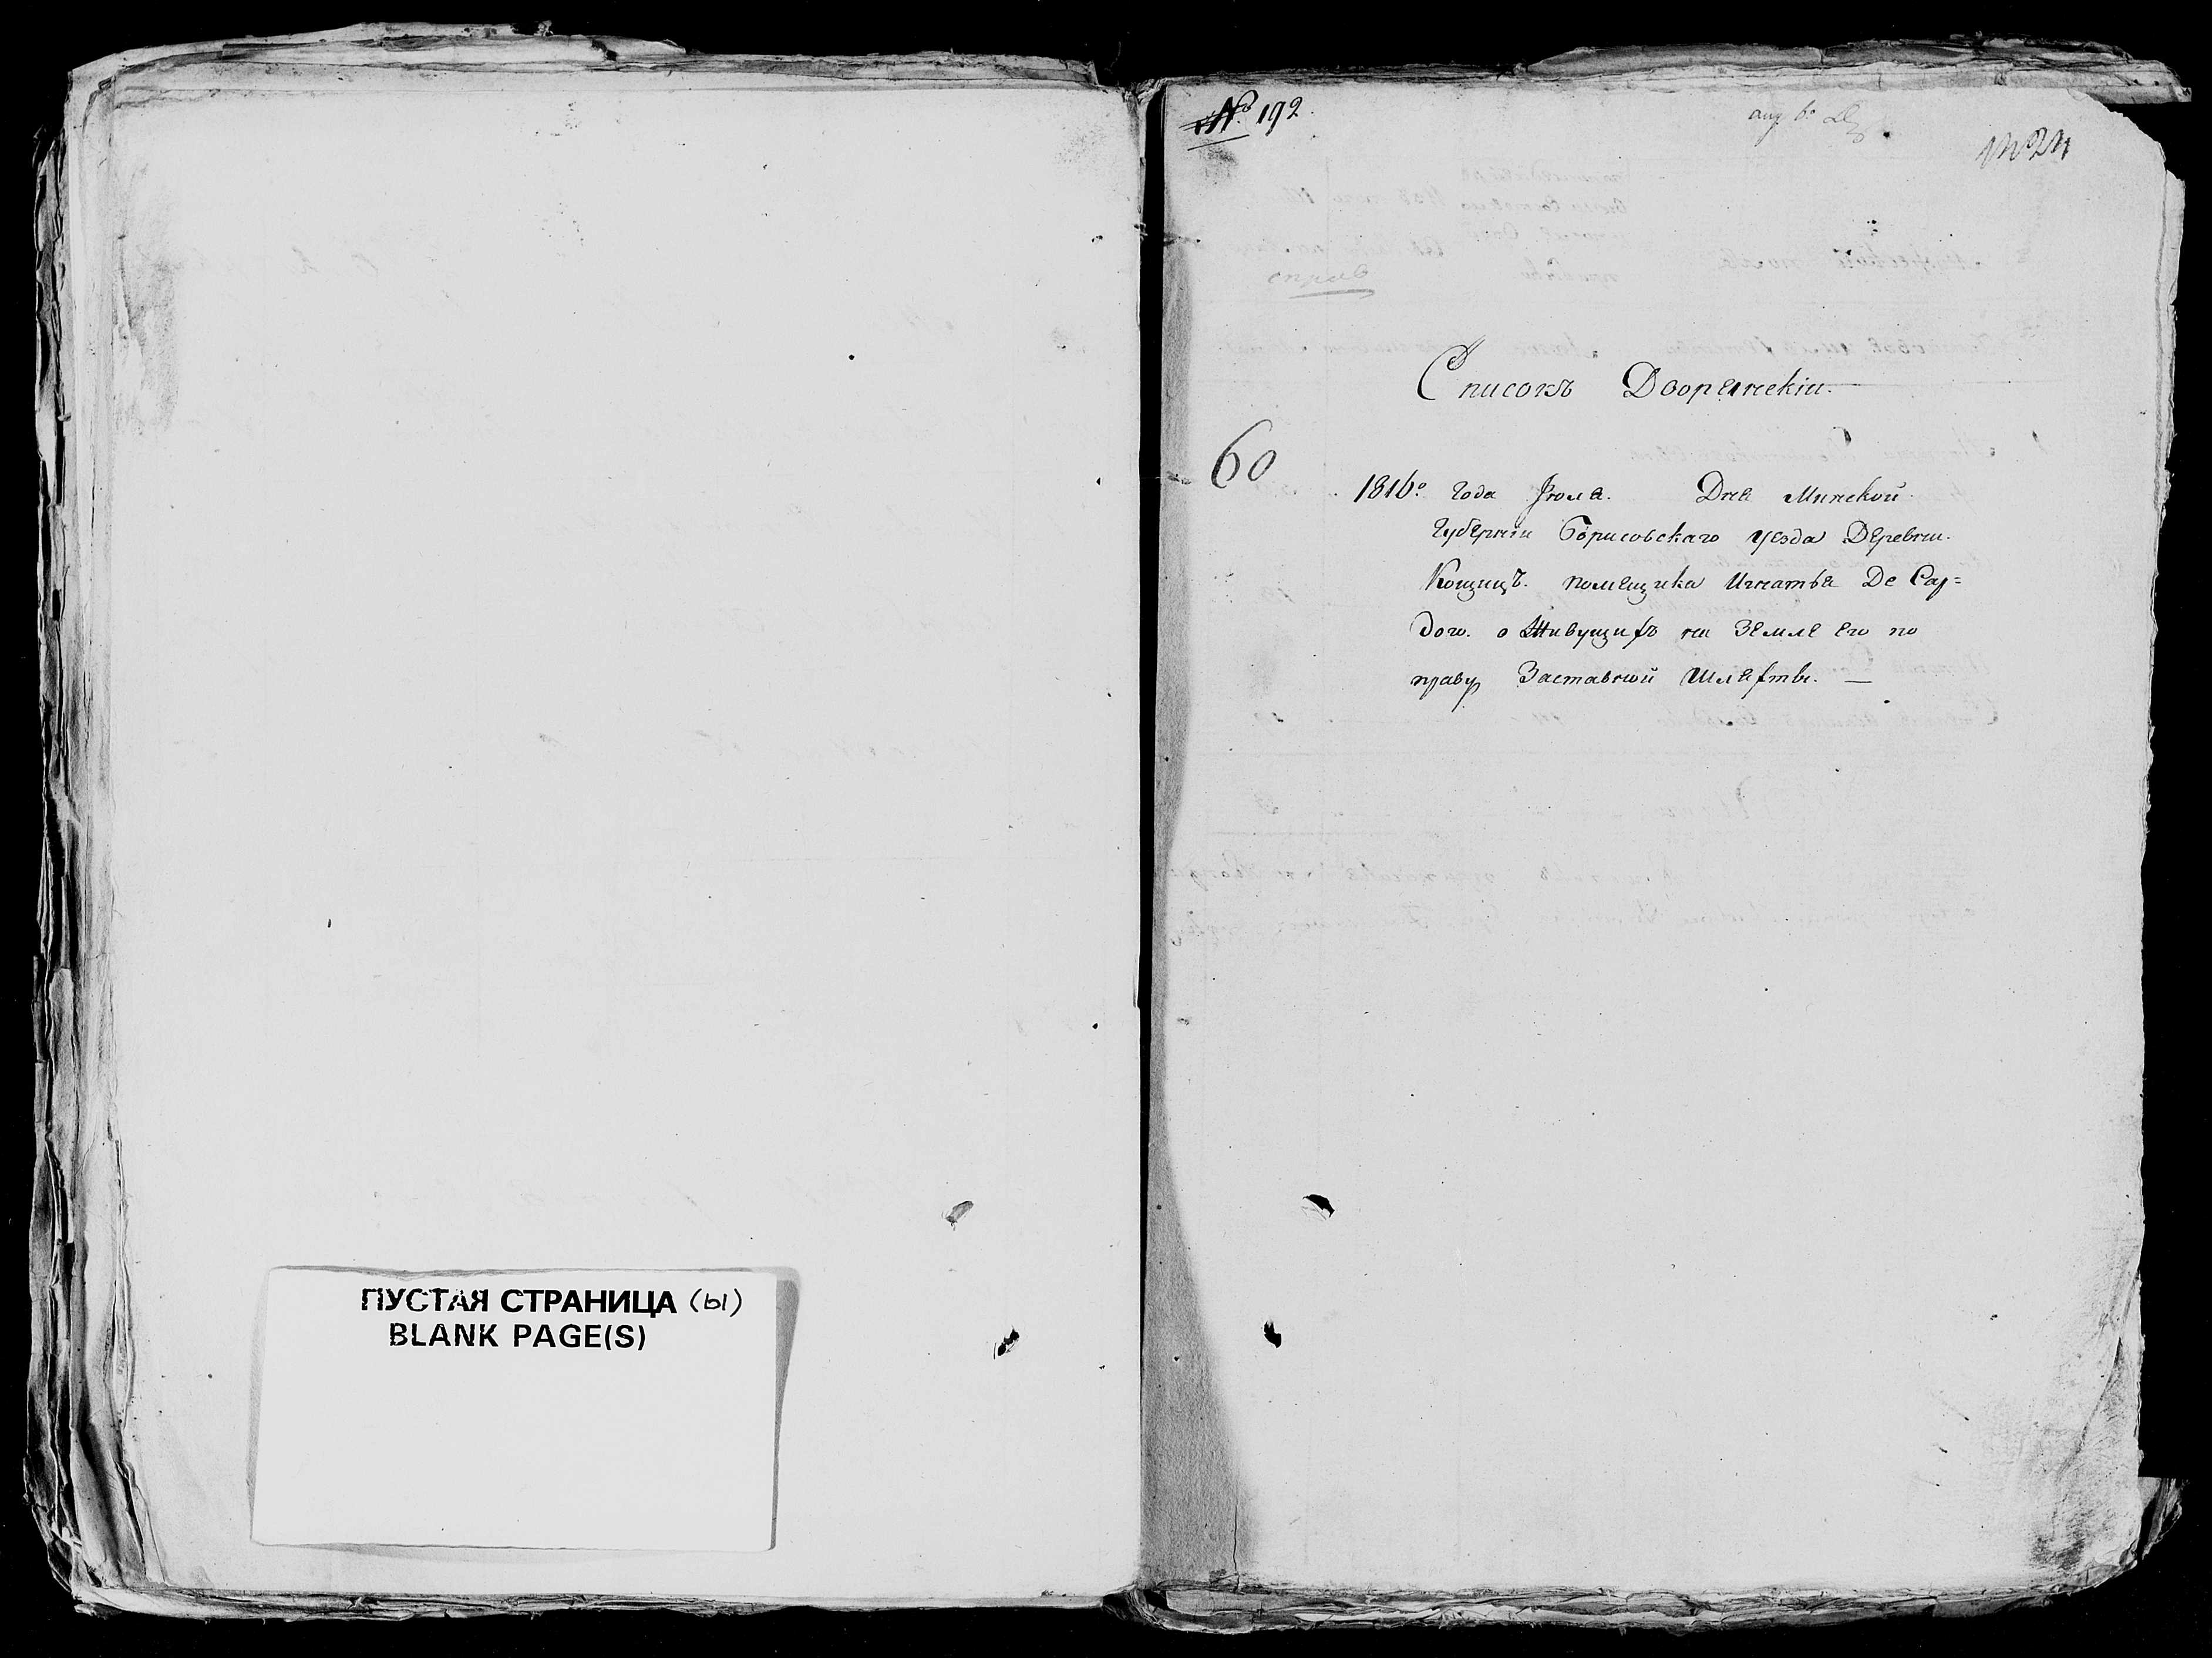 ПУСТАЯ СТРАНИЦА (ы)
BLANK PAGE(S)
№ 192.
№ 24
Списокъ Дворянскіи.
60
1816го года Июля. Дня Минской
Губернїи Борисовскаго уезда Деревни.
Кощицъ. помещика Игнатья Де Сар=
дого. о Живущихъ на Земле его по
праву Заставной Шляхты. —